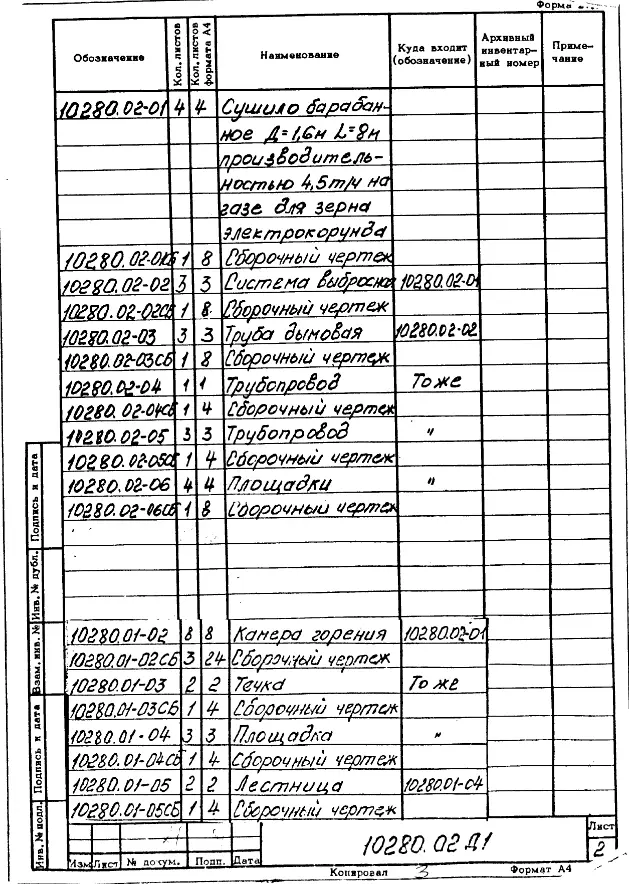 Форма
Обозначение Кол. листов Кол. листов формата А4 Наименование Куда входит (обозначение) Архивный инвентарный номер Примечание
10280.02-01 4 4 Сушило барабан-
ное Д=1,6м L=8м
производитель-
ностью 4,5т/ч на
газе для зерна
электрокорунда
10280.02-01СБ 1 8 Сборочный чертеж
10280.02-02 3 3 Система выбросная 10280.02-01
10280.02-02СБ 1 8 Сборочный чертеж
10280.02-03 3 3 Труба дымовая 10280.02-02
10280.02-03СБ 1 8 Сборочный чертеж
10280.02-04 1 1 Трубопровод То же
10280.02-04СБ 1 4 Сборочный чертеж
10280.02-05 3 3 Трубопровод "
10280.02-05СБ 1 4 Сборочный чертеж
10280.02-06 4 4 Площадки "
10280.02-06СБ 1 8 Сборочный чертеж
10280.01-02 8 8 Камера горения 10280.02-01
10280.01-02СБ 3 24 Сборочный чертеж
10280.01-03 2 2 Течка То же
10280.01-03СБ 1 4 Сборочный чертеж
10280.01-04 3 3 Площадка "
10280.01-04СБ 1 4 Сборочный чертеж
10280.01-05 2 2 Лестница 10280.01-04
10280.01-05СБ 1 4 Сборочный чертеж
Подпись и дата
Инв. № дубл.
Взам. инв. №
Подпись и дата
Инв. № подл.
Изм Лист № докум. Подп. Дата
10280.02 Д1
Лист
2
Копировал 3 Формат А4